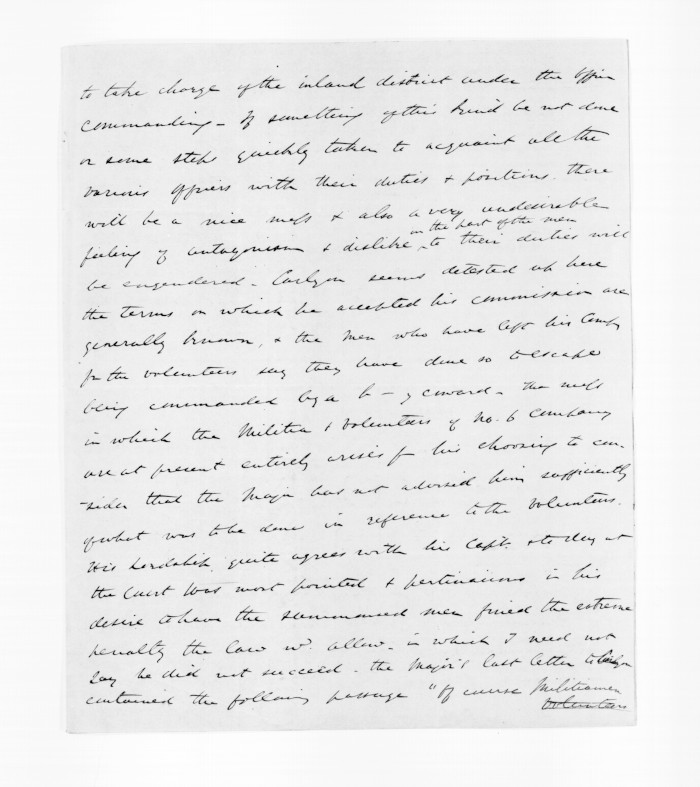 to take charge of the inland district under the Officer
commanding - If something of this kind be not done
or some steps quickly taken to acquaint all the
various officers with their duties & positions. there
will be a nice mess & also a very undesirable
on the part of the men
feeling of antagonism & dislike to their duties will
be engendered - Carlyon seems detested up here
the terms on which he accepted his commission are
generally known, & the men who have left his Compy
for the volunteers say they have done so to escape
being commanded by a b-y coward - the mess
in which the Militia & Volunteers of No. 6 Company
are at present entirely arises fm his choosing to con-
-sider that the Major has not advised him sufficiently
of what was to be done in reference to the Volunteers.
His Lordship quite agrees with his Capt. & to day at
the Court was most pointed & pertinacious in his
desire to have the summoned men fined the extreme
penalty the law wd. allow - in which I need not
say he did not succeed - the Major's last letter to Carlyon
contained the following passage "Of course Militiamen
Volunteers